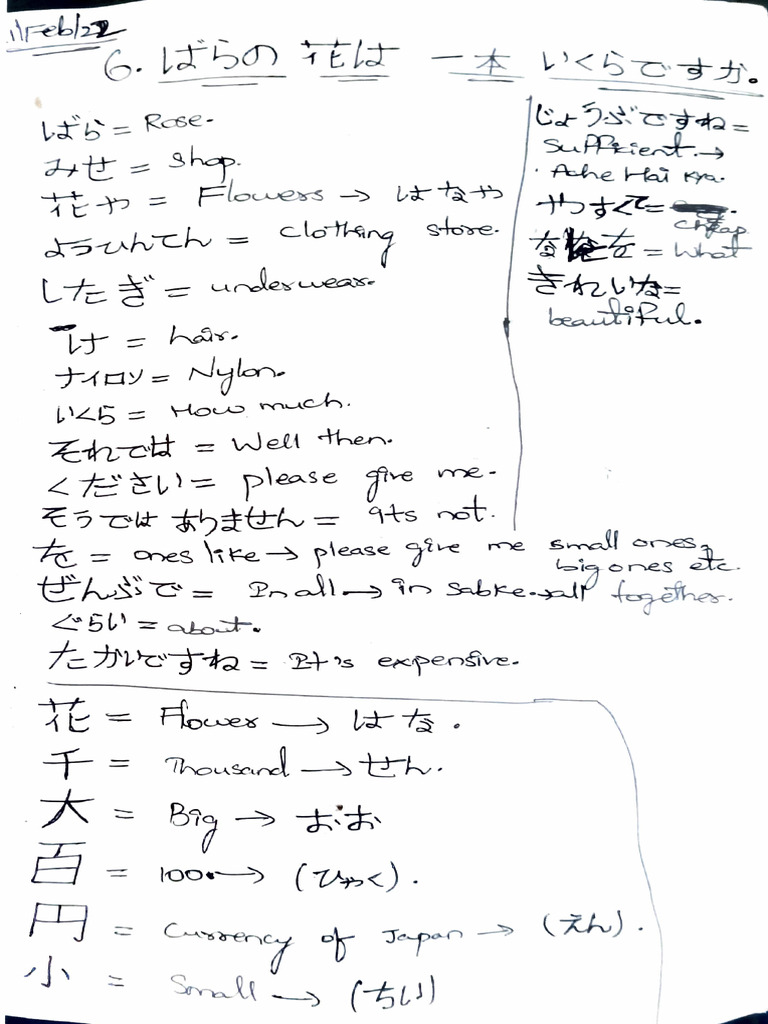 11 Feb/22
6. ばらの 花は 一本 いくらですか。
ばら = Rose.
みせ = shop.
花や = Flowers → はなや
ようひんてん = clothing store.
したぎ = underwear.
け = hair.
ナイロン = Nylon.
いくら = How much.
それでは = Well then.
ください = please give me.
そうではありません = Its not.
な = ones like → please give me small ones, big ones etc.
ぜんぶで = In all → in sabke → all together.
ぐらい = about.
たかいですね = It's expensive.
じょうぶですね =
Suffkient. →
Ache Hai kya.
やすくて =
cheap
= What
きれいな =
beautiful.
花 = Flower → はな.
千 = Thousand → せん.
大 = Big → おお
百 = 100 → (ひゃく).
円 = Currency of Japan → (えん).
小 = Small → (ちい)